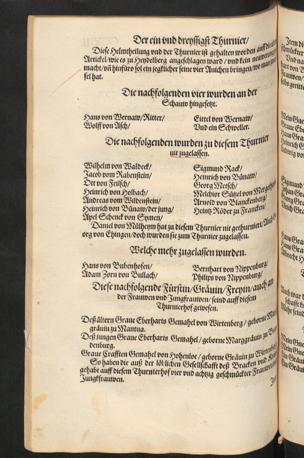 Der ein vnd dreyssigst Thurnier/
Diese Helmtheilung vnd der Thurnier ist gehalten worden auff die
Artickel/wie es zu Heydelberg angeschlagen ward/vnd kein
macht/vñ hinfüro sol ein jeglicher seine vier Anichen bringen/wo man
fel hat.
Die nachfolgenden vier wurden an der
Schauw hingesetzt.
Hans von Wernaw/Ritter/
Wolff von Asch/
Eittel von Wernaw/
Vnd ein Schweller.
Die nachfolgenden wurden zu diesem Thurnier
nit zugelassen.
Wilhelm von Waldeck/
Jacob vom Rabenstein/
Ott von Feilsch/
Heinrich von Holbach/
Andreas vom Wildenstein/
Heinrich von Bünaw/der jung/
Apel Schenck von Symen/
Sigmund Rack/
Heinrich von Bünaw/
Georg Metsch/
Melchior Sützel von
Arnold von Blanckenberg
Heintz Röder zu
Daniel von Mülheym hat zu diesem Thurnier nit gethurniert/
org von Ehingen/doch wurden sie zum Thurnier zugelassen.
Welche mehr zugelassen wurden.
Hans von Bubenhofen/
Adam Zorn von Bullach/
Bernhart von Nippenburg/
Philips von Nippenburg/
Diese nachfolgende Fürstin/Gräuin/Freyin/auch an
der Frauwen vnd Jungfrauwen/seind auff diesem
Thurnierhof gewesen.
Deß ältern Graue Eberharts Gemahel von Wirtenberg/geborne
gräuin zu Mantua.
Deß jungen Graue Eberharts Gemahel/geborne Marggräuin zu
denburg.
Graue Crafften Gemahel von Hohenloe/geborne Gräuin zu
So haben die auß der löblichen Gesellschafft deß Bracken vnd
gehabt auff diesem Thurnierhof vier vnd achtzig geschmückter Frauwen
Jungfrauwen.